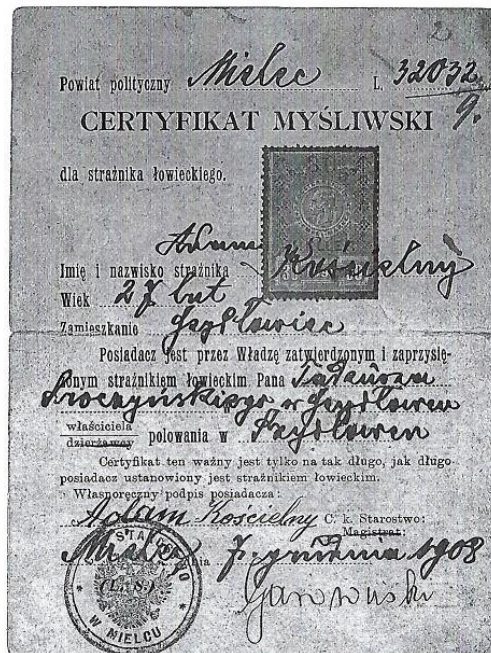 2
Powiat polityczny Mielec L. 32032
9.
CERTYFIKAT MYŚLIWSKI
dla strażnika łowieckiego.
Imię i nazwisko strażnika Adam Kościelny
Wiek 27 lat
Zamieszkanie Szydłowiec
Posiadacz jest przez Władzę zatwierdzonym i zaprzysię-
żonym strażnikiem łowieckim Pana Tadeusza
w Szydłowcu
właściciela
dzierżawcy polowania w Szydłowcu
Certyfikat ten ważny jest tylko na tak długo, jak długo
posiadacz ustanowiony jest strażnikiem łowieckim.
Własnoręczny podpis posiadacza:
Adam Kościelny C. k. Starostwo:
Magistrat:
Mielec dnia 7. grudnia 1908
(L. S.)
W MIELCU